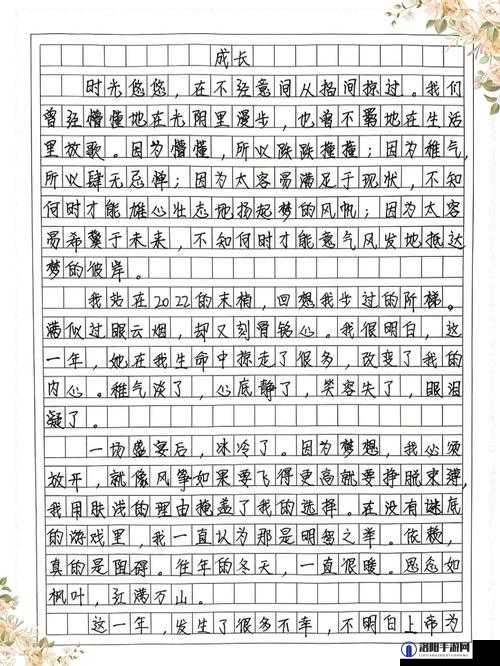 成长
时光悠悠，在不经意间从指间掠过。我们
曾经懵懂地在光阴里漫步，也曾不羁地在生活
里放歌。因为懵懂，所以跌跌撞撞；因为稚气，
所以肆无忌惮；因为太容易满足于现状，不知
何时才能雄心壮志地扬起梦的风帆；因为太容
易希冀于未来，不知何时才能意气风发地抵达
梦的彼岸。
我站在2022的末梢，回想我步过的阶梯。
满似过眼云烟，却又刻骨铭心。我很明白，这
一年，她在我生命中掠走了很多，改变了我的
内心。稚气淡了，心底静了，笑容失了，眼泪
凝了。
一场盛宴后，冰冷了。因为梦想，我必须
放开，就像风筝如果要飞得更高就要挣脱束缚，
我用肤浅的理由掩盖了我的选择。在没有谜底
的游戏里，我一直认为那是明智之举。依赖，
真的是阻碍。往年的冬天，一直很暖。思念如
枫叶，红满万山。
这一年，发生了很多不幸，不明白上帝为
洛阳手游网